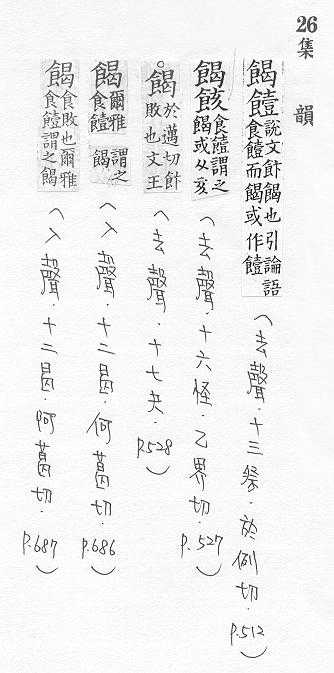 26
集韻
餲饐說文飰餲也引論語食饐而餲或作饐
(去聲.十三祭.於例切.P.512)
餲餩食饐謂之餲或从亥
(去聲.十六怪.乙界切.P.527)
。餲於邁切飰敗也文王
(去聲.十七夬.P.528)
餲爾雅食饐謂之餲
(入聲.十二曷.何葛切.P.686)
餲食敗也爾雅食饐謂之餲
(入聲.十二曷.阿葛切.P.687)